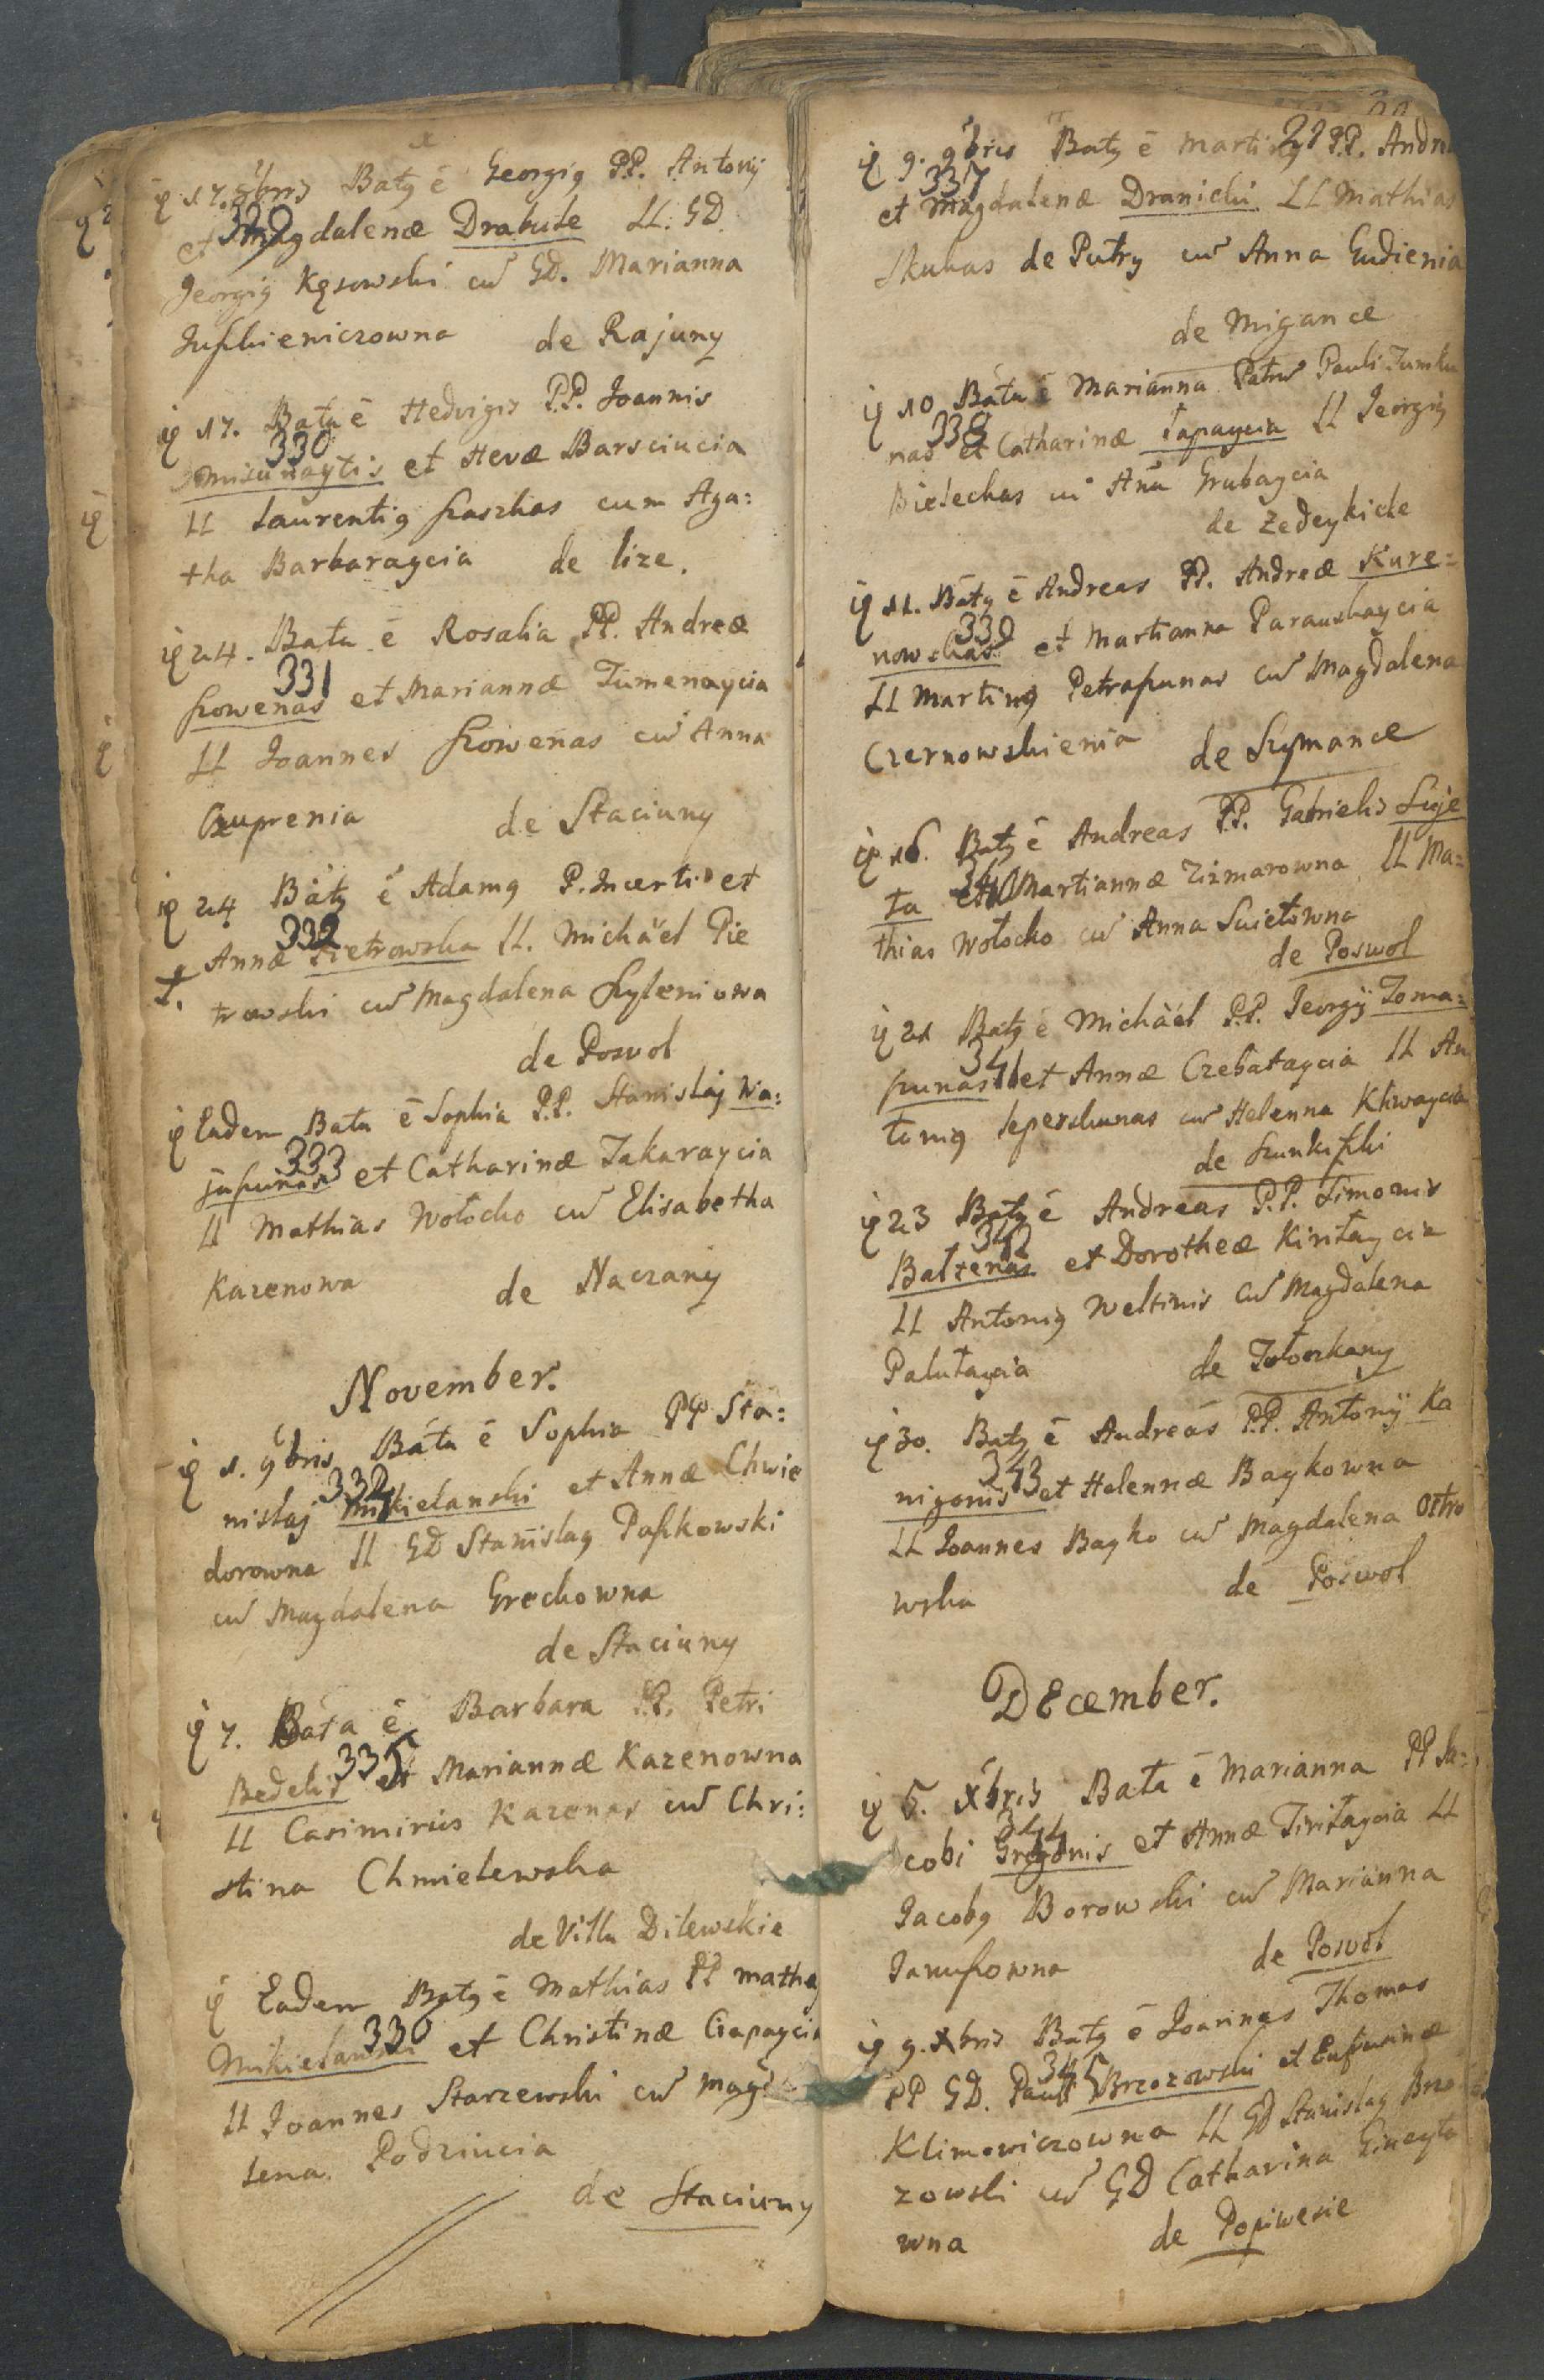 17. 8bris Batg ē Georgig P.P. Antonij
329
et Magdalenæ Drabule LL. GD.
Georgig Kęsowski cū GD. Marianna
Juszkieniczowna de Rajuny
17. Bata ē Hedvigis P.P. Joannis
330
Misiunaytis et Hevæ Barsciucia
LL Laurentig Kaszkas cum Aga:
tha Barbaraycia de lize.
24. Bata ē Rosalia PP. Andreæ
331
Szowenas et Mariannæ Tumenaycia
LL Joannes Szowenas cū Anna
Czuprenia de Staciuny
24 Batg ē Adamg P. Incerti et
332
Annæ Pietrowska LL. Michäel Pie
trowski cū Magdalena Szyleniowa
de Poswol
Eadem Bata ē Sophia P.P. Stanislaj Wa:
333
juszunas et Catharinæ Takaraycia
LL Mathias Wołocko cū Elisabetha
Kazenowa de Naczany
November.
1. 9bris Bata ē Sophia PP Sta:
334
nislaj Mikielanski et Annæ Chwie
dorowna LL GD Stanislag Paszkowski
cū Magdalena Grochowna
de Staciuny
7. Bata ē Barbara P.P. Petri
335
Bedelis et Mariannæ Kazenowna
LL Casimirus Kazenas cū Chri:
stina Chmielewska
de Villa Dilewskie
Eadem Batg ē Mathias PP Mathej
336
Mikielanski et Christinæ Ciapaycia
LL Joannes Starzewski cū Magda
lena Podziucia
de Staciuny
21
9. 9bris Batg ē Marting P.P. Andre
337
et Magdalenæ Dranicki LL Mathias
Skukas de Putry cū Anna Gudienia
de Migance
10 Bata ē Marianna Patrū Pauli Tumku
338
nas et Catharinæ Papaycia LL Georgig
Bielechas cū Aña Grubaycia
de Zedeykicle
11. Batg ē Andreas PP. Andreæ Kure=
339
nowskas et Martianna Parauskaycia
LL Marting Petraszunas cū Magdalena
Czernowskienia de Szymance
16. Batg ē Andreas P.P. Gabrielis Suje
340
ta et Martiannæ Zizmarowna LL Ma=
thias Wołocko cū Anna Suietowna
de Poswol
21 Batg ē Michäel P.P. Georgij Toma=
341
szunas et Annæ Czebataycia LL An
tonig Lepeschunas cū Helenna Kliwaycia
de Szunkiszki
23 Batg ē Andreas P.P. Simonis
342
Baltenas et Dorotheæ Kiritaycia
LL Antonig Weltinis cū Magdalena
Palutaycia de Tołoczkany
30. Batg ē Andreas P.P. Antonij Ka
343
nigonis et Helennæ Baykowna
LL Joannes Bayko cū Magdalena Ostro
wska de Poswol
December.
5. Xbris Bata ē Marianna PP Ja=
344
cobi Grygonis et Annæ Tiritaycia LL
Jacobg Borowski cū Marianna
Januszowna de Poswol
9. Xbris Batg ē Joannes Thomas
345
PP GD. Pauli Brzozowski et Eufrosinæ
Klimowiczowna LL GD Stanislag Brzo
zowski cū GD Catharina Gineyto
wna de Popiwesie